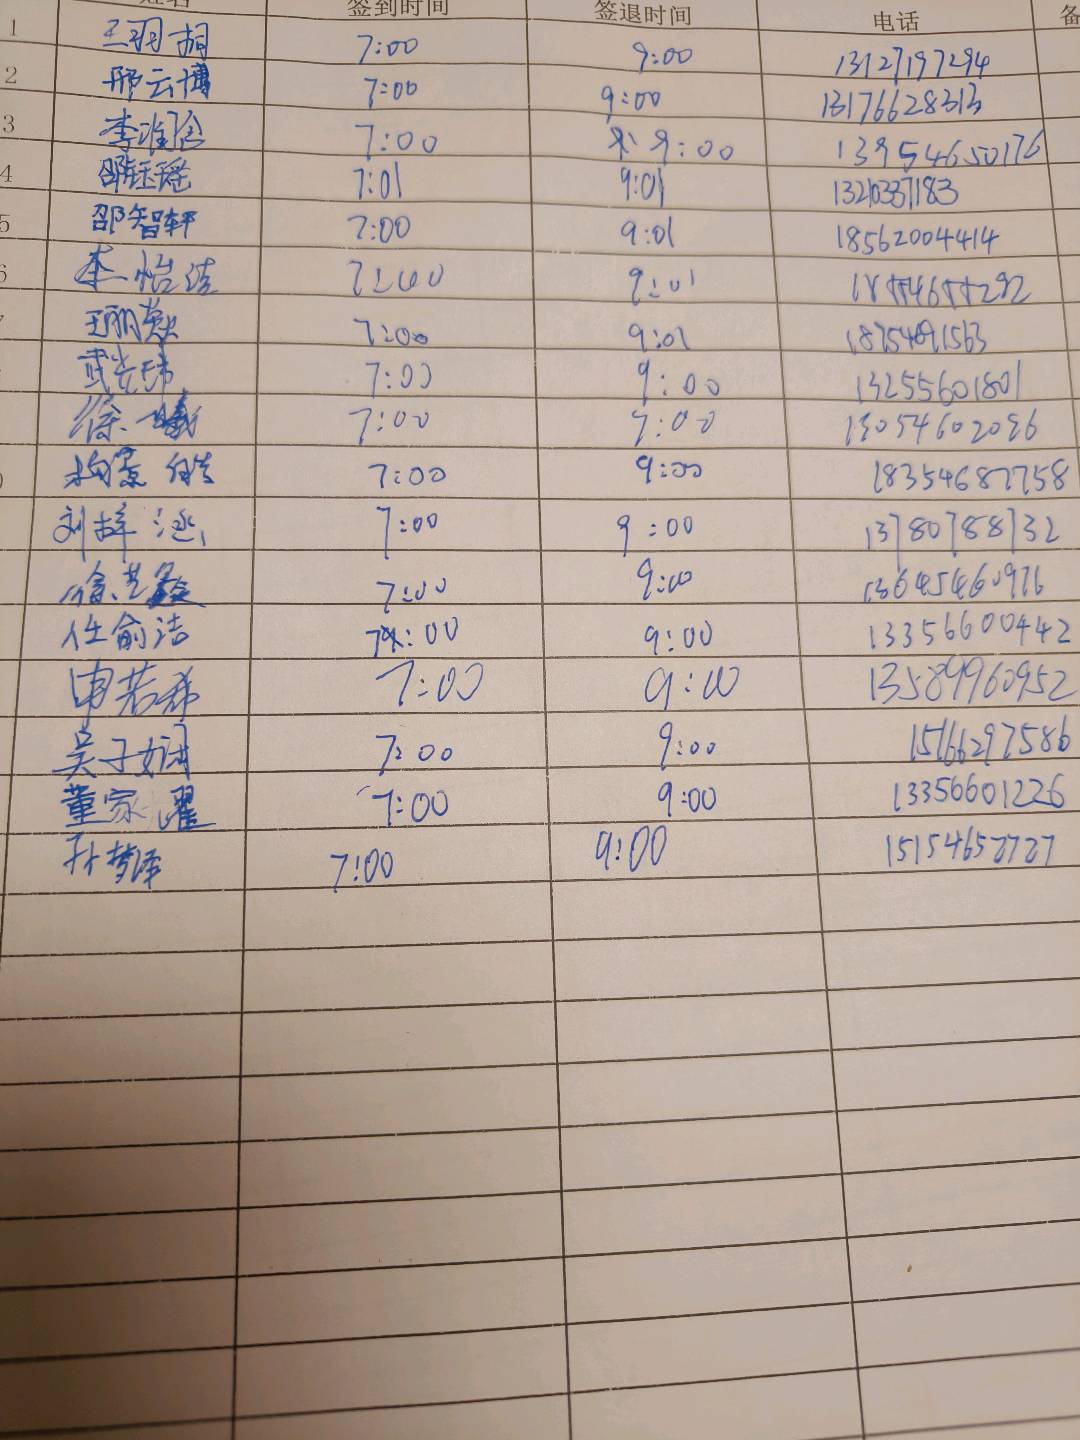 姓名 签到时间 签退时间 电话 备
1 王羽桐 7:00 9:00 13127197294
2 邢云博 7:00 9:00 13176628313
3 李 7:00 9:00 13954650176
4 邵钰瑶 7:01 9:01 13210337183
5 邵智轩 7:00 9:01 18562004414
6 李怡洁 7:00 9:01
王 7:00 9:01
武 7:00 9:00 13255601801
徐 7:00 9:00
7:00 9:00 18354687758
刘梓涵 7:00 9:00 13780788732
徐艺 7:00 9:00 13645460976
任俞洁 7:00 9:00 13356600442
申若希 7:00 9:00 13589960952
吴子娴 7:00 9:00 15166297586
董家曜 7:00 9:00 13356601226
孙梦泽 7:00 9:00 15154652727